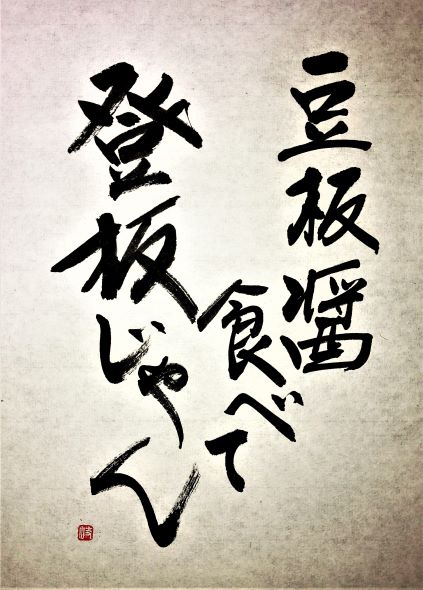 豆板醤
食べて
登板じゃん